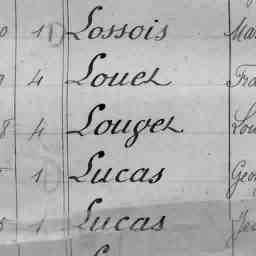 0 1 Lossois Ma
4 Louet Fra
8 4 Louget Lou
1 Lucas Geo
5 1 Lucas Ja